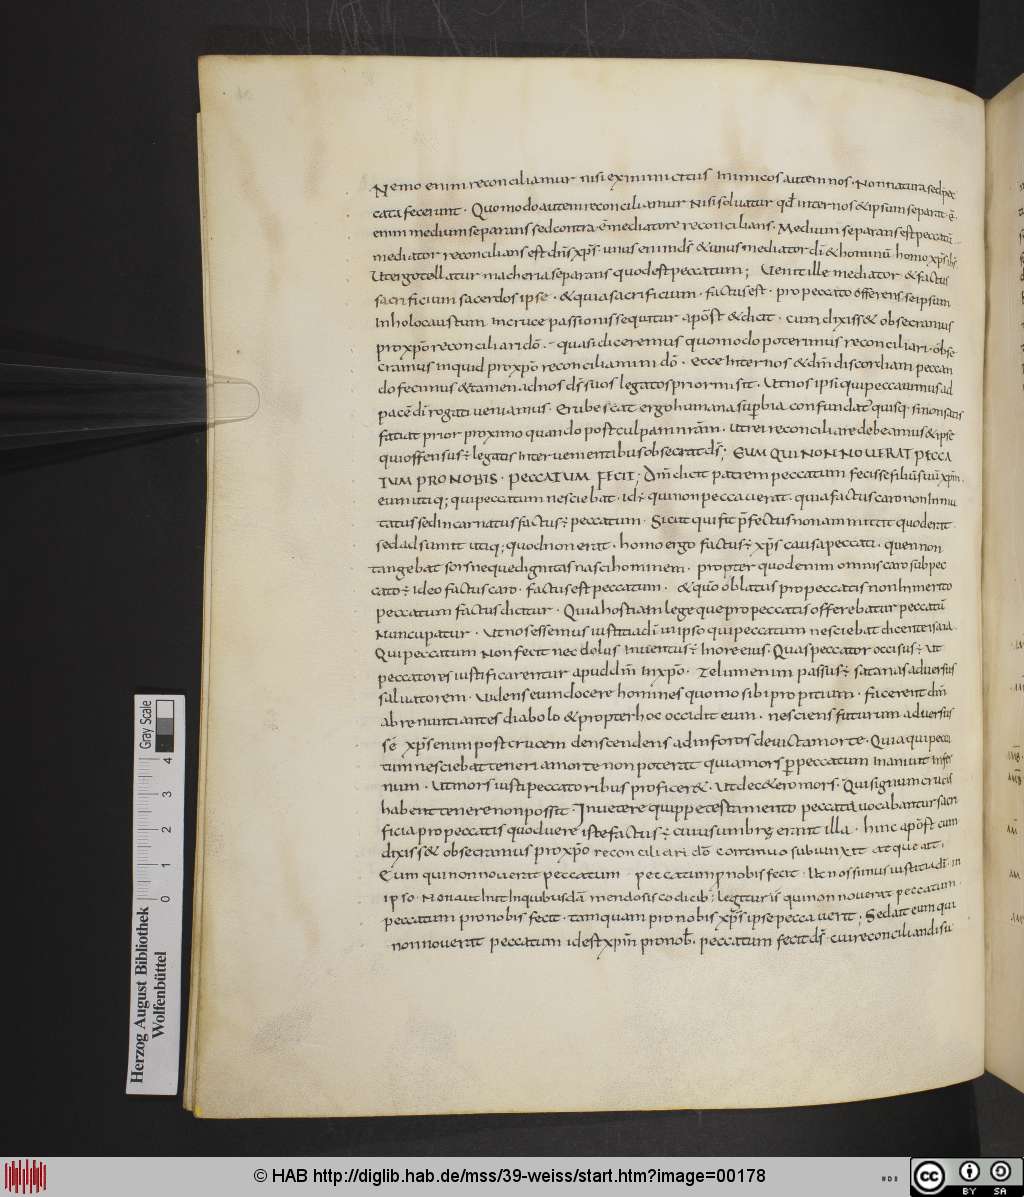 Nemo enim reconciliamur nisi ex inimicitiis inimicos autem nos · Non natura sed pec
cata fecerunt · Quomodo autem reconciliamur Nisi soluatur qđ inter nos & ipsum separat · ē
enim medium separans sed contra · ē mediatore reconcilians · Medium separans est peccatū
mediator reconcilians est dn̄s xp̄s · unus enim ds̄ & unus mediator dī & hominū homo xp̄s ih̄s
Ut ergo tollatur macheria separans quod est peccatum; Venit ille mediator · & factus
sacrificium sacerdos ipse · & quia sacrificium · factus est · pro peccato offerens se ipsum
In holocaustum In cruce passionis sequitur apōst & dicit · cum dixiss& obsecramus
pro xp̄o reconciliari dō · quasi diceremus quomodo poterimus reconciliari · obse
cramus inquid pro xp̄o reconciliamini dō · ecce Inter nos & dm̄ discordiam peccan
do fecimus & tamen ad nos ds̄ suos legatos prior misit · Ut nos ipsi qui peccauimus ad
pacē dī rogati ueniamus · Erubescat ergo humana superbia confundat᷑ quisq · si non satis
faciat prior proximo quando post culpam nr̄am · ut rei reconciliare debeamus & ipse
qui offensus ÷ legatis Interuenientibus obsecrat ds̄; EUM QUI NON NOUERAT PECCA
TUM PRO NOBIS · PECCATUM FECIT; Dm̄ dicit patrem peccatum fecisse filiū suū xp̄m ·
eum utiq; qui peccatum nesciebat · id ÷ qui non peccauerat · quia factus caro non Inmu
tatus sed incarnatus factus ÷ peccatum · Sicut qui fit p̄fectus non ammittit quod erat
sed adsumit utiq; quod non erat · homo ergo factus ÷ xp̄s causa peccati · quem non
tangebat sors neque dignitas nasci hominem · propter quod enim omnis caro sub pec
cato ÷ ideo factus caro · factus est peccatum · & quō oblatus pro peccatis non Inmerito
peccatum factus dicitur · Quia hostia In lege que pro peccatis offerebatur peccatū
Nuncupatur · Ut nos essemus iustitia dī in ipso qui peccatum nesciebat dicente isaia ·
Qui peccatum Non fecit nec dolus Inuentus ÷ In ore eius · Quas peccator occisus ÷ Ut
peccatores iustificarentur apud dm̄ In xp̄o · Telum enim passus ÷ satanas aduersus
saluatorem · Uidens eum docere homines quomo sibi propitium · facerent dm̄
abrenuntiantes diabolo & propter hoc occidit eum · nesciens futurum aduersus
sē xp̄s enim post crucem denscendens ad inferos deuicta morte · Quia qui pecca
tum nesciebat teneri a morte non poterat quia mors p̱ peccatum Inaniuit Infer
num · Ut mors iusti peccatoribus proficer& · Ut dec&ero mors · Qui signum crucis
habent tenere non possit · In uetere quippe testamento peccata uocabantur sacri
ficia pro peccatis quod uere iste factus ÷ cuius umbre erant illa · hinc apōst cum
dixiss& obsecramus pro xp̄o reconciliari dō continuo subiunxit atque ait ·
Eum qui non nouerat peccatum · peccatum p nobis fecit · Ut nos simus iustitia dī · in
ipso · Non aut Int In quibusdā mendosis codicib; legitur is qui non nouerat peccatum ·
peccatum pro nobis fecit · tamquam pro nobis xp̄s ipse peccauerit; Sed ait eum qui
non nouerat peccatum id est xp̄m pro nob̄ · peccatum fecit ds̄ · cui reconciliandi su
Gray Scale
4
3
2
1
0
Herzog August Bibliothek
Wolfenbüttel
© HAB http://diglib.hab.de/mss/39-weiss/start.htm?image=00178
cc BY SA